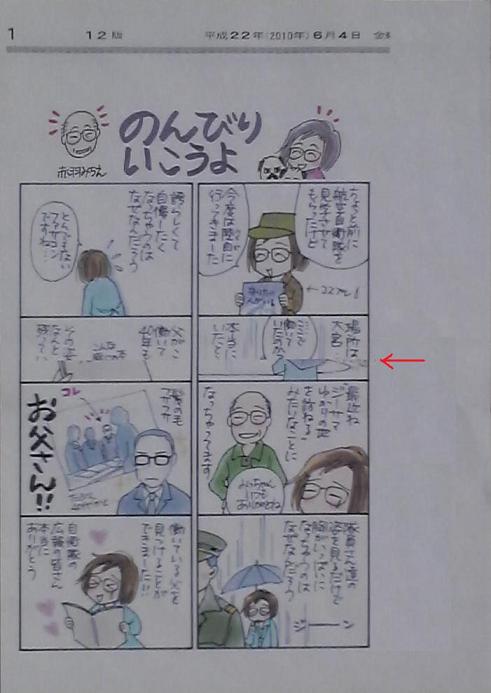 1 12版 平成22年(2010年)6月4日 金
のんびり
いこうよ
赤羽みちえ
ちょっと前に
航空自衛隊を
見学させて
もらったけど
今度は陸自に
行ってきました
←コスプレ!
場所は
大宮
ここで
働いて
いたのか
本当に
いたと
最近ね
ジーサマ
ゆかりの地
を訪ねる
みたいなことに
なっちゃってます
みっちゃん
いつも
ありがとね
隊員さん達の
姿を見るだけで
胸がいっぱいに
なっちゃうのは
なぜなんだろう
ジーン
誇らしくて
自慢したく
なっちゃうのは
なぜなんだろう
とんでもない
ファザコン
ですね…
父がこ
働いて
40年も
その姿
なんと
残ってい
髪の毛
フサフサ
コレ
お父さん!!
働いている父を
見つけることが
できました!!
自衛隊の
広報の皆さん
本当に
ありがとう